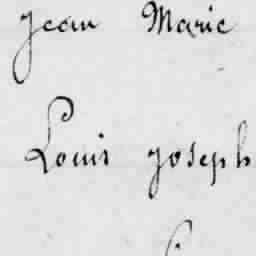 Jean Marie
Louis Joseph